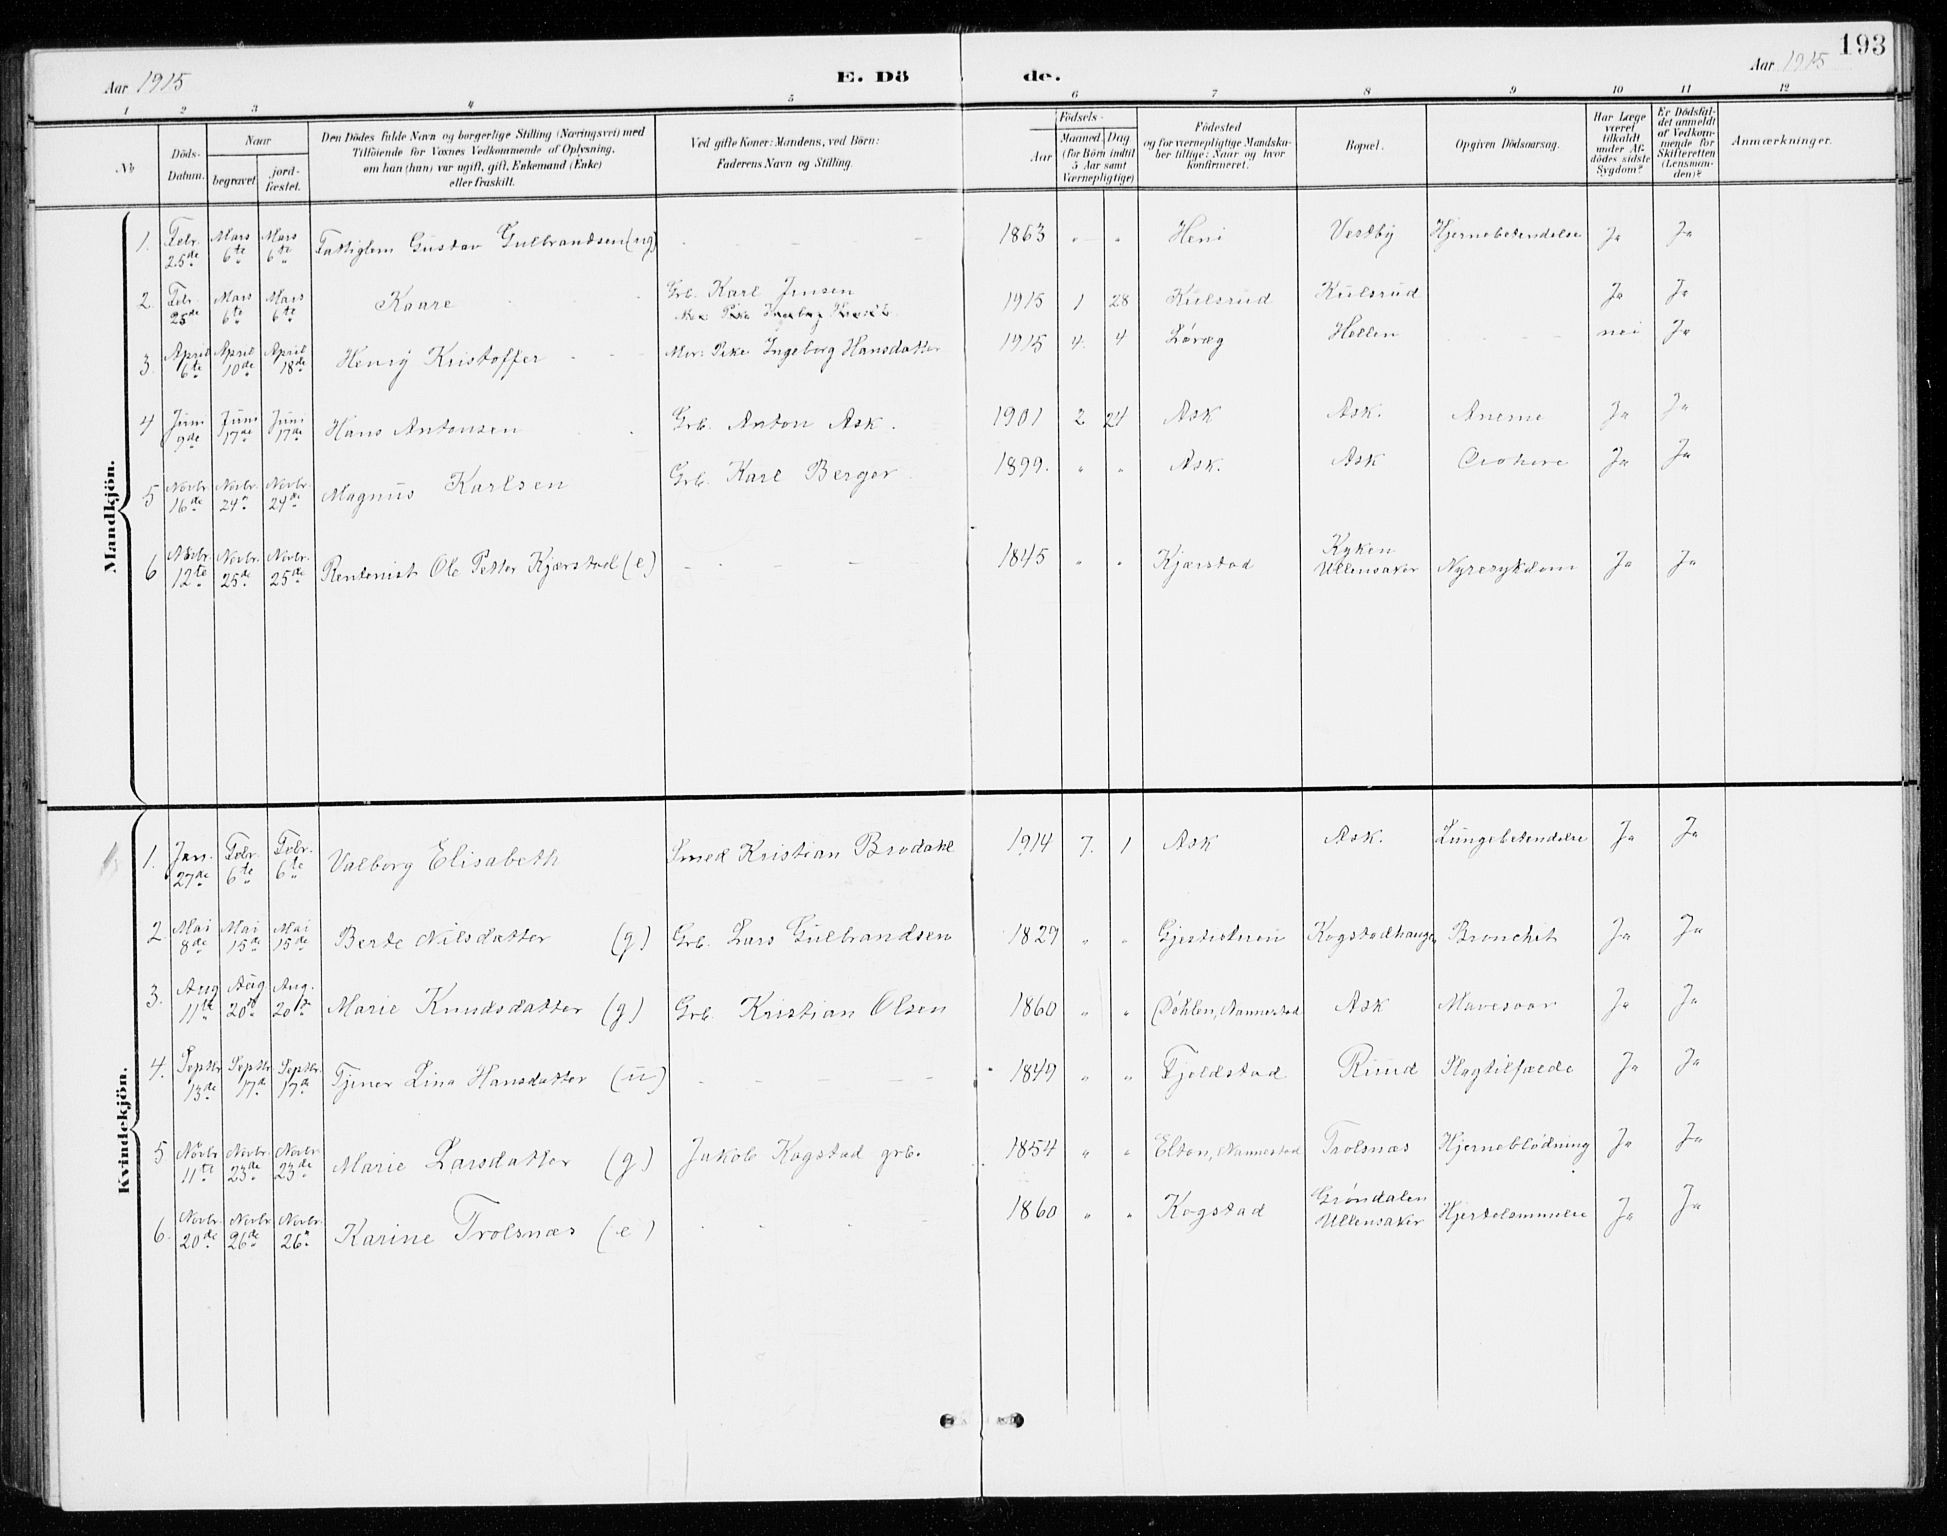 193
Aar 1915
E. Dö de.
Aar 1915
1 2 3 4 5 6 7 8 9 10 11 12
No
Döds-Datum.
Naar
begravet.
jord-fæstet.
Den Dödes fulde Navn og borgerlige Stilling (Næringsvei) med
Tilföiende for Voxnes Vedkommende af Oplysning,
om han (hun) var ugift, gift, Enkemand (Enke)
eller fraskilt.
Ved gifte Koner: Mandens, ved Börn:
Faderens Navn og Stilling.
Födsels-
Aar
Maaned. Dag
(for Börn indtil
5 Aar samt
Værnepligtige)
Födested
og for værnepligtige Mandska-
ber tillige: Naar og hvor
konfirmeret.
Bopæl.
Opgiven Dödsaarsag.
Har Læge
været
tilkaldt
under Af-
dödes sidste
Sygdom?
Er Dödsfal-
det anmeldt
af Vedkom-
mende for
Skifteretten
(Lensman-
den)?
Anmærkninger.
Mandkjön.
1. Febr. 25de Mars 6te Mars 6te Fattiglem Gustav Gulbrandsen (ug) - - - 1863 " " Heni Vestby Hjernebetendelse Ja Ja
2. Febr. 25de Mars 6te Mars 6te Kaare Grb. Karl Jensen 1915 1 28 Kulsrud Kulsrud Ja Ja
3. April 6te April 10de April 18de Henry Kristoffer Mor: Pike Ingeborg Hansdatter 1915 4. 4 Løræg Hellen - - - nei Ja
4 Juni 9de Juni 17de Juni 17de Hans Antonsen Grb. Anton Ask. 1901 2 24 Ask Ask. Aneme Ja Ja
5 Novbr. 16de Novbr. 24de Novbr. 24de Magnus Karlsen Grb. Karl Berger 1899. " " Ask. Ask Ja Ja
6 Novbr. 12te Novbr. 25de Novbr. 25de Rentenist Ole Petter Kjærstad (e) - - - 1845 " " Kjærstad Kyken Ullensaker Nyresykdom Ja Ja
Kvindekjön.
1. Jan. 27de Febr. 6te Febr. 6te Valborg Elisabeth Smed Kristian Brodahl 1914 7. 1 Ask Ask. Lungebetendelse Ja Ja
2 Mai 8de Mai 15de Mai 15de Berte Nilsdatter (g) Grb. Lars Gulbrandsen 1829 " " Gjestisteren Kogstadhaugen Bronchit Ja Ja
3. Aug 11te Aug 20de Aug. 20de Marie Knudsdatter (g) Grb. Kristian Olsen 1860 " " Døhlen, Nannestad Ask Mavesaar Ja Ja
4. Septbr 13de Septbr 17de Septbr. 17de Tjener Lina Hansdatter (u) - - - - 1849 " " Fjeldstad Ruud Slagtilfælde Ja Ja
5 Novbr. 11te Novbr. 23de Novbr. 23de Marie Larsdatter (g) Jakob Kogstad grb. 1854 " " Elton, Nannestad Trolsnæs Hjerneblödning Ja Ja
6. Novbr. 20de Novbr. 26de Novbr. 26de Karine Trolsnæs (e) 1860 " " Kogstad Gröndalen Ullensaker Hjertelammelse Ja Ja